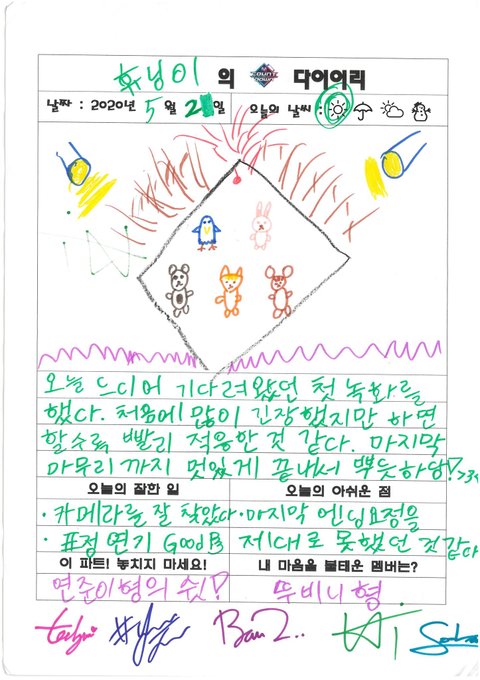 휴닝이 의 COUNT DOWN 다이어리
날짜 : 2020년 5월 21일 오늘의 날씨 :
오늘 드디어 기다려왔던 첫 녹화를
했다. 처음에 많이 긴장했지만 하면
할수록 빨리 적응한 것 같다. 마지막
마무리까지 멋있게 끝내서 뿌듯하당!
오늘의 잘한 일 오늘의 아쉬운 점
· 카메라를 잘 찾았다 · 마지막 엔딩요정을
· 표정 연기 Good 제대로 못했던 것 같다
이 파트! 놓치지 마세요! 내 마음을 불태운 멤버는?
연준이형의 쉿! 뚜비니형